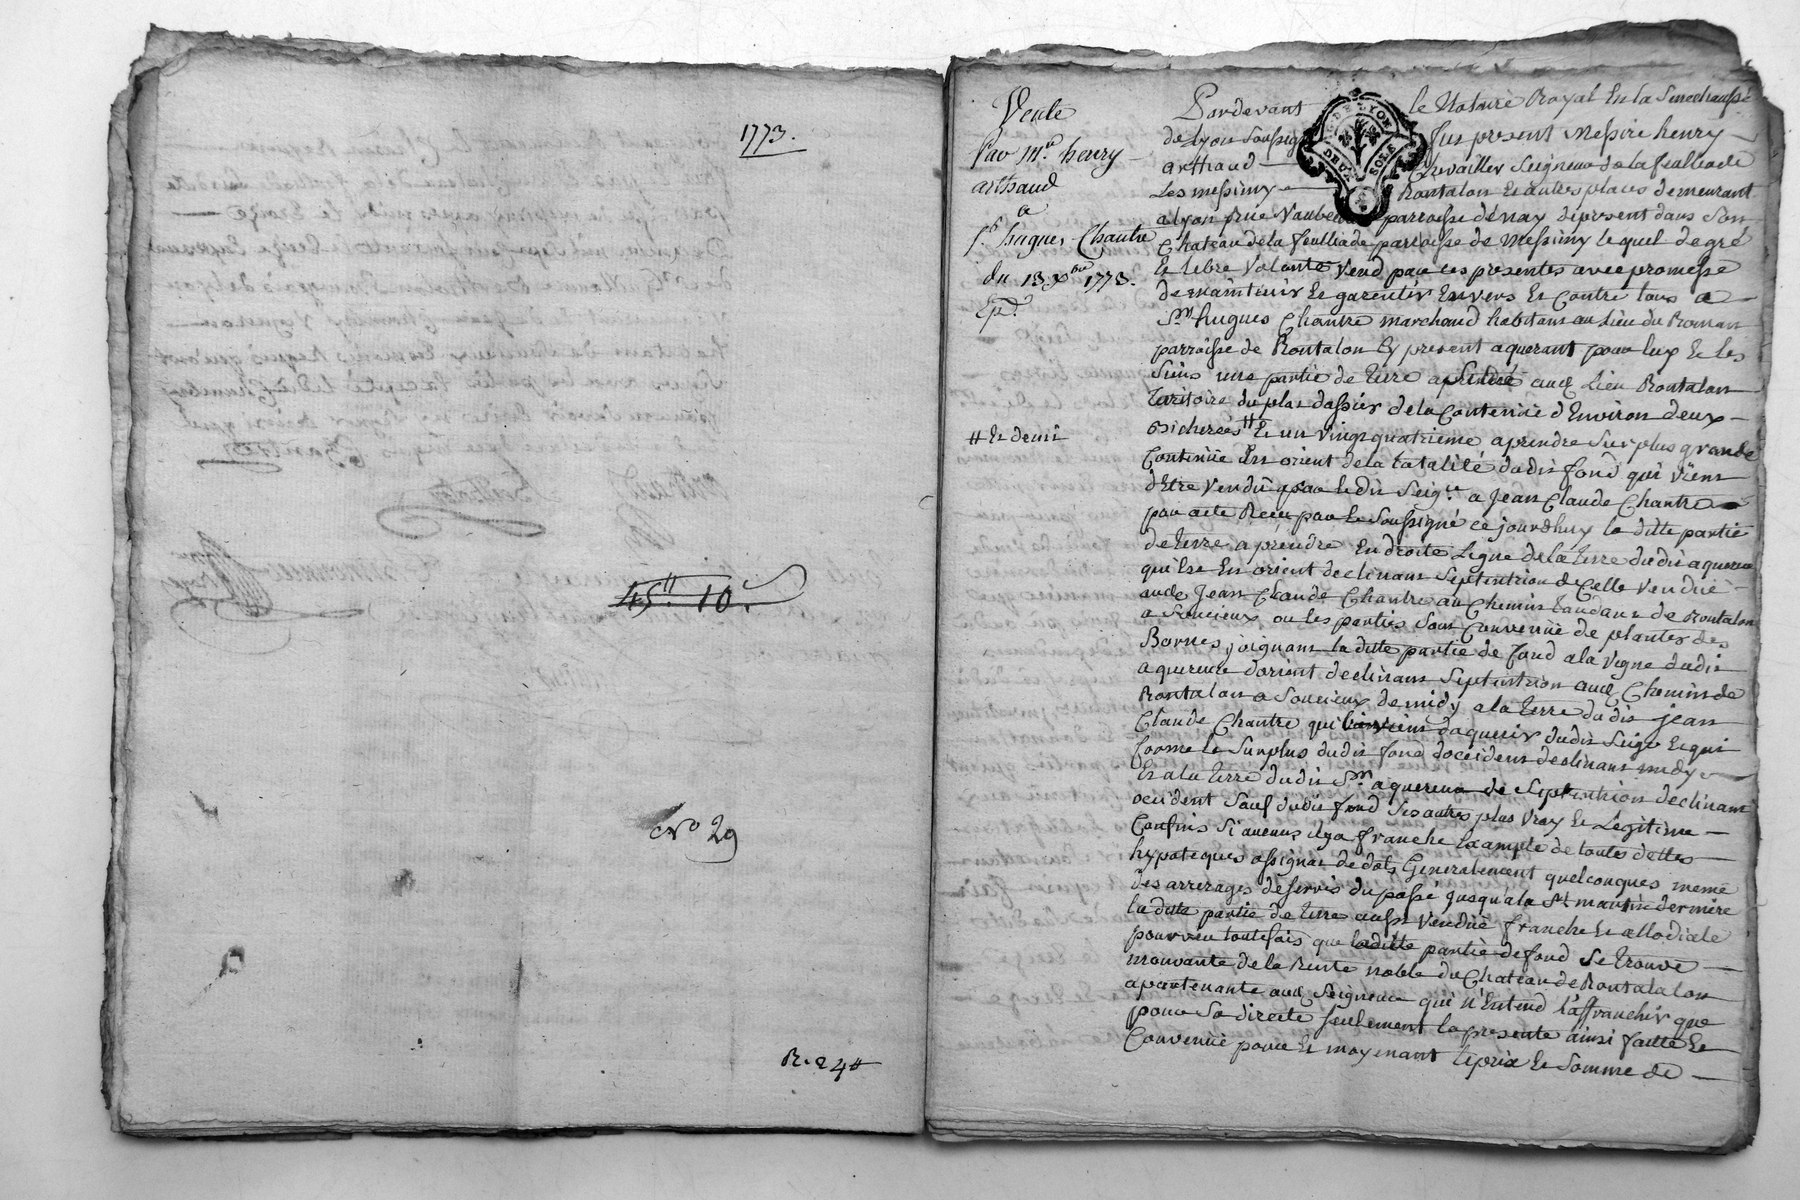 1773.
45ᵗᵗ 10ˢ
N° 29
R. 24#
Vente
Par Mre henry
arthaud
a
Sr hugues Chantre
du 13 Xbre 1773.
Ep.
# Et demi
G. DE LYON
DEUX SOLS
Pardevant le Notaire Royal En la Senechaussé
de Lyon soussig fus present Messire henry
arthaud Chevallier Seigneur de la feulliade
Les messimy Rontalon Et autres places demeurant
a lyon rue Vaubecour parroisse dénay de present dans son
Chateau de la feulliade parroisse de Messimy lequel de gré
Et libre Volonté Vend par ces presentes avec promesse
de maintenir Et garentir Envers Et Contre tous a
Sr hugues Chantre marchand habitant au Lieu du Roman
parroisse de Rontalon Cy present aquerant pour luy Et les
Siens une partie de terre a Scitué aud Lieu Rontalon
territoire du plat dassier de la Contenüe d'Environ deux
Bicherees # Et un Vingt quatrieme a prendre Sur plus grande
Contenüe En orient de la totalité dudit fond qui Vient
d'Etre Vendü par ledit Seigr a Jean Claude Chantre
par acte Recu par le Soussigné ce jourdhuy la ditte partie
de terre a prendre En droite Ligne de la terre dudit aquereur
qui Est En orient declinant Septentrion de Celle Vendüe
aud Jean Claude Chantre au Chemin tandant de Rontalon
a Soucieux ou les parties Sont Convenüe de planter des
Bornes, joignant la ditte partie de fond a la Vigne dudit
aquereur d'orient declinant Septentrion aud Chemin de
Rontalon a Soucieux de midy a la terre dudit jean
Claude Chantre qui vient d'aquerir dudit Seigr Et qui
forme le Surplus dudit fond d'occident declinant midy
Et a la terre dudit Sr aquereur de Septentrion declinant
occident Sauf dudit fond Ses autres plus Vray Et Legitime
Confins Si aucuns il y a franche Example de toutes dettes
hypoteques assignat de dots Generalement quelconques meme
des arrerages de servis du passé Jusqu'a la St martin derniere
la ditte partie de terre aussi Vendüe franche Et allodiale
pourveu toutefois que la ditte partie de fond Se trouve
mouvante de la Rente noble du Chateau de Rontalalon
apartenante aud Seigneur qui n'Entend l'affranchir que
pour Sa directe Seulement la presente ainsi faitte Et
Convenüe pour Et moyenant le prix Et Somme de